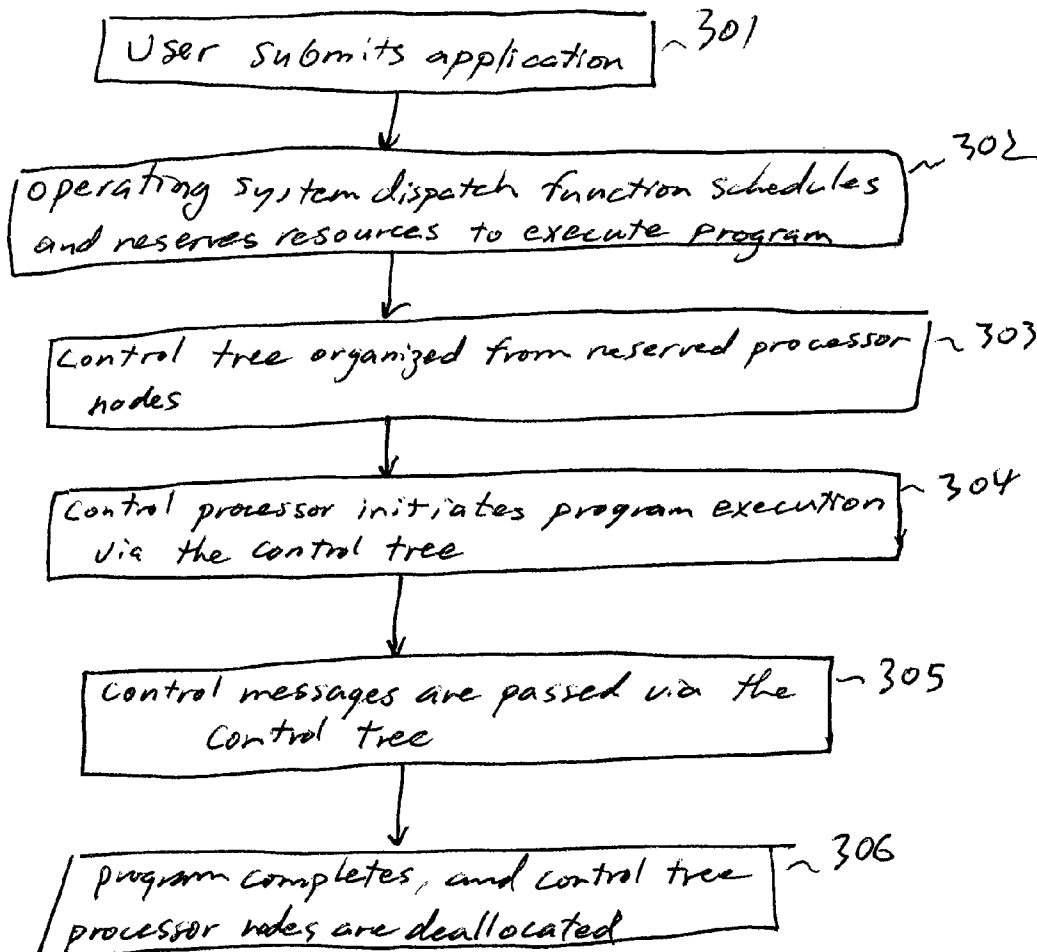 User submits application
~301
operating system dispatch function schedules
~302
and reserves resources to execute program
Control tree organized from reserved processor
~303
nodes
Control processor initiates program execution
~304
via the control tree
Control messages are passed via the
~305
Control tree
program completes, and control tree
~306
processor nodes are deallocated